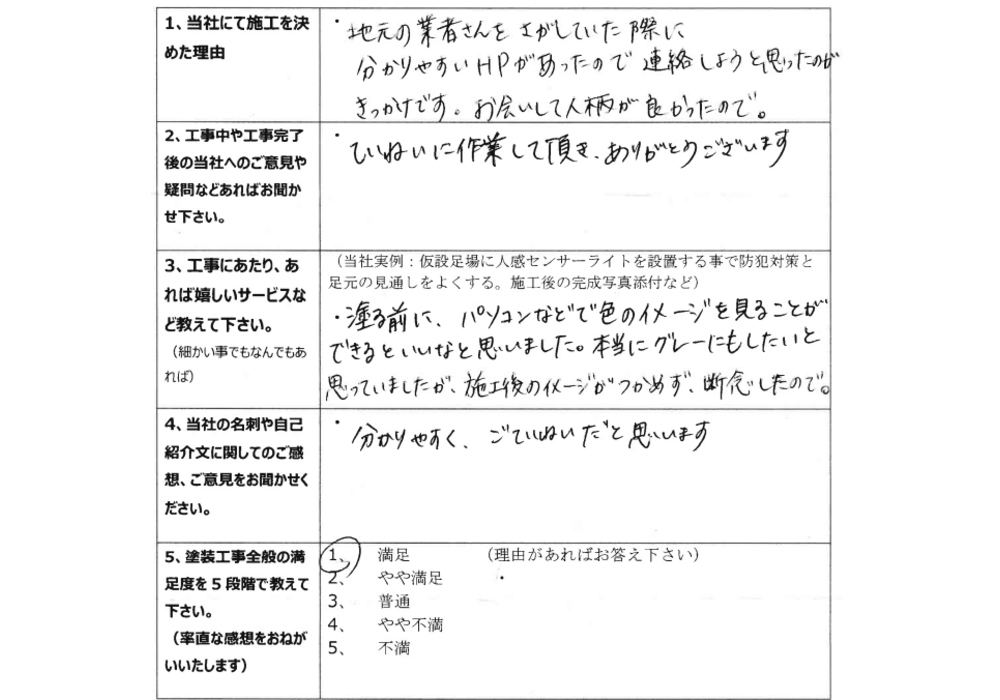 1、当社にて施工を決
めた理由
・地元の業者さんをさがしていた際に
分かりやすいHPがあったので連絡しようと思ったのが
きっかけです。お会いして人柄が良かったので。
2、工事中や工事完了
後の当社へのご意見や
疑問などあればお聞か
せ下さい。
・ていねいに作業して頂き、ありがとうございます
3、工事にあたり、あ
れば嬉しいサービスな
ど教えて下さい。
（細かい事でもなんでもあ
れば）
（当社実例：仮設足場に人感センサーライトを設置する事で防犯対策と
足元の見通しをよくする。施工後の完成写真添付など）
・塗る前に、パソコンなどで色のイメージを見ることが
できるといいなと思いました。本当にグレーにもしたいと
思っていましたが、施工後のイメージがつかめず、断念したので。
4、当社の名刺や自己
紹介文に関してのご感
想、ご意見をお聞かせく
ださい。
・分かりやすく、ごていねいだと思います
5、塗装工事全般の満
足度を5段階で教えて
下さい。
（率直な感想をおねが
いいたします）
1、 満足 （理由があればお答え下さい）
2、 やや満足 ・
3、 普通
4、 やや不満
5、 不満